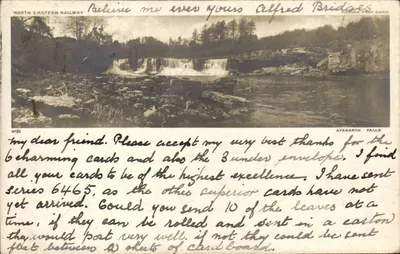 Believe me ever yours Alfred Bridges.
NORTH EASTERN RAILWAY
AYSGARTH FALLS
My dear friend. Please accept my very best thanks for the
6 charming cards and also the 3 under envelope. I find
all your cards to be of the highest excellence. I have sent
series 6465, as the other superior cards have not
yet arrived. Could you send 10 of the leaves at a
time, if they can be rolled and sent in a carton
they would post very well. if not they could be sent
flat between 2 sheets of cardboard.